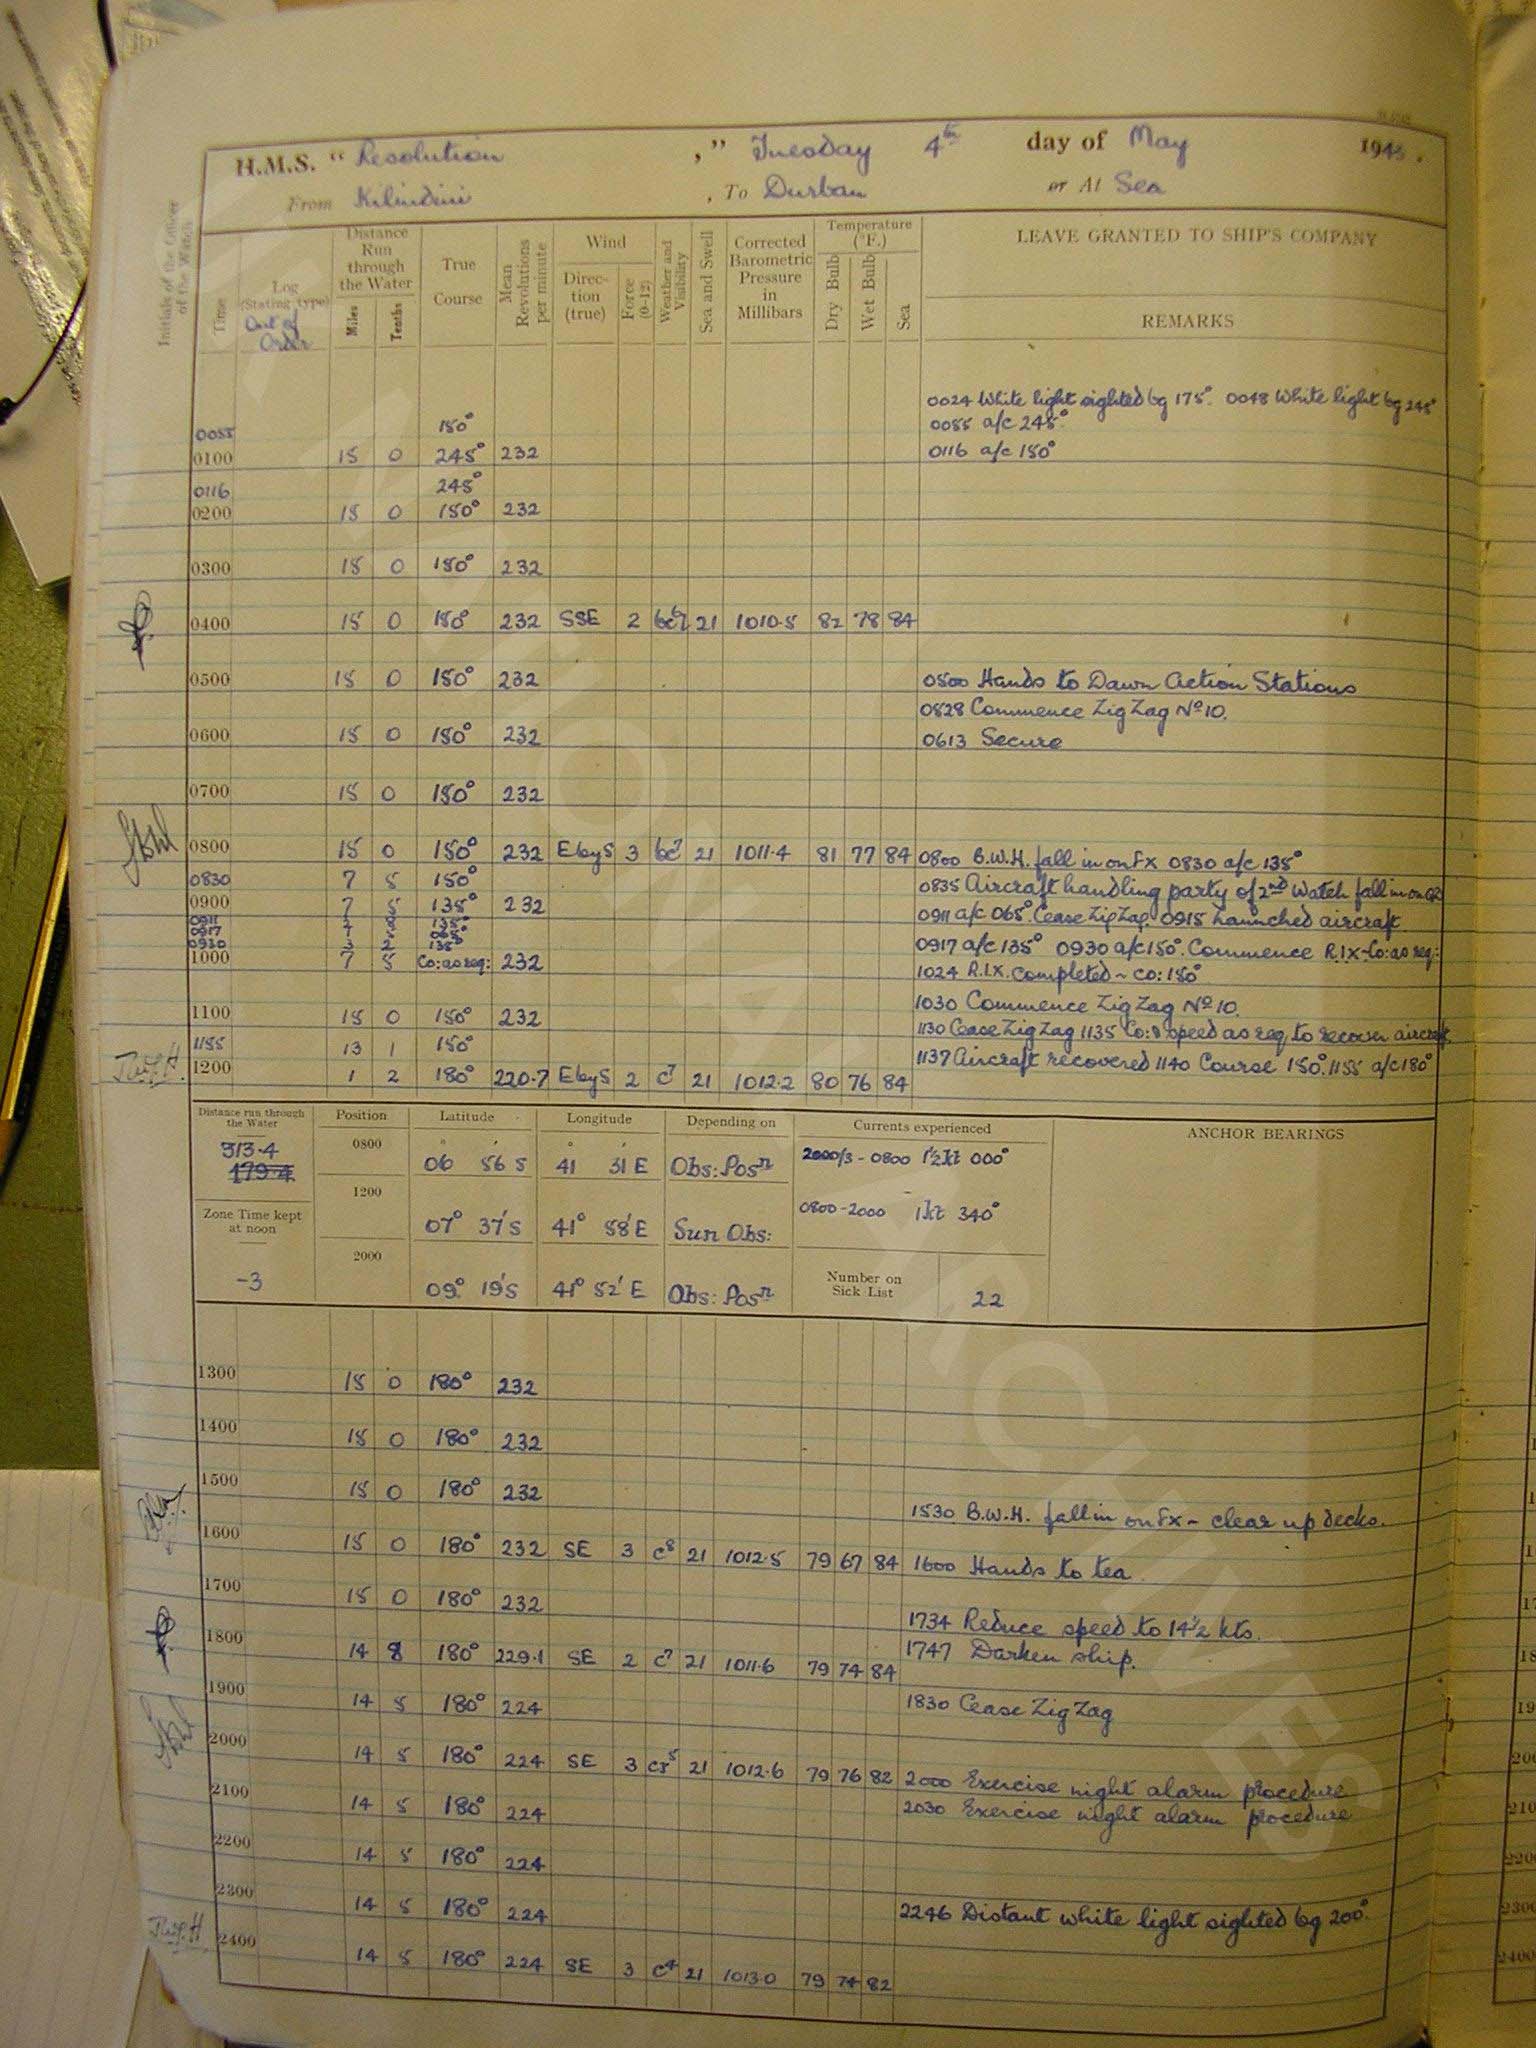 H.M.S. " Resolution ," Tuesday 4th day of May 1943.
From Kilindini , To Durban or At Sea
Initials of the Officer of the Watch
Time
Log (Stating type) Out of Order
Distance Run through the Water
Miles Tenths
True Course
Mean Revolutions per minute
Wind
Direction (true) Force (0-12)
Weather and Visibility
Sea and Swell
Corrected Barometric Pressure in Millibars
Temperature (°F.)
Dry Bulb Wet Bulb Sea
LEAVE GRANTED TO SHIP'S COMPANY
REMARKS
0024 White light sighted bg 175°. 0048 White light bg 245°
0055 150° 0055 a/c 245°.
0100 15 0 245° 232 0116 a/c 150°
0116 245°
0200 15 0 150° 232
0300 15 0 150° 232
0400 15 0 150° 232 SSE 2 bc 21 1010.5 82 78 84
0500 15 0 150° 232 0500 Hands to Dawn Action Stations
0528 Commence Zig Zag No 10.
0600 15 0 150° 232 0613 Secure
0700 15 0 150° 232
0800 15 0 150° 232 E by S 3 bc7 21 1011.4 81 77 84 0800 B.W.H. fall in on Fx 0830 a/c 135°
0830 7 5 150° 0835 Aircraft handling party of 2nd Watch fall in on QD
0900 7 5 135° 232 0911 a/c 065°. Cease Zig Zag. 0915 Launched aircraft
0911 135°
0917 065°
0930 3 2 135° 0917 a/c 135° 0930 a/c 150°. Commence R.I.X-Co: as req:
1000 7 5 Co: as req: 232 1024 R.I.X. completed ~ co: 150°
1030 Commence Zig Zag No 10.
1100 15 0 150° 232 1130 Cease Zig Zag 1135 Co: & speed as req to recover aircraft
1155 13 1 150° 1137 Aircraft recovered 1140 Course 150°. 1155 a/c 180°
1200 1 2 180° 220.7 E by S 2 c7 21 1012.2 80 76 84
Distance run through the Water
313.4
179.4
Zone Time kept at noon
-3
Position Latitude Longitude Depending on Currents experienced ANCHOR BEARINGS
0800 06° 56' S 41° 31' E Obs: Posn 2000/3 - 0800 1½ kt 000°
1200 07° 37' S 41° 58' E Sun Obs: 0800 - 2000 1 kt 340°
2000 09° 19' S 41° 52' E Obs: Posn
Number on Sick List 22
1300 15 0 180° 232
1400 15 0 180° 232
1500 15 0 180° 232
1530 B.W.H. fall in on Fx - clear up decks.
1600 15 0 180° 232 SE 3 c8 21 1012.5 79 67 84 1600 Hands to tea
1700 15 0 180° 232
1734 Reduce speed to 14½ kts.
1800 14 8 180° 229.1 SE 2 c7 21 1011.6 79 74 84 1747 Darken ship.
1900 14 5 180° 224 1830 Cease Zig Zag
2000 14 5 180° 224 SE 3 21 1012.6 79 76 82 2000 Exercise night alarm procedure
2100 14 5 180° 224 2030 Exercise night alarm procedure
2200 14 5 180° 224
2300 14 5 180° 224 2246 Distant white light sighted bg 200°.
2400 14 5 180° 224 SE 3 c4 21 1013.0 79 74 82
THE NATIONAL ARCHIVES